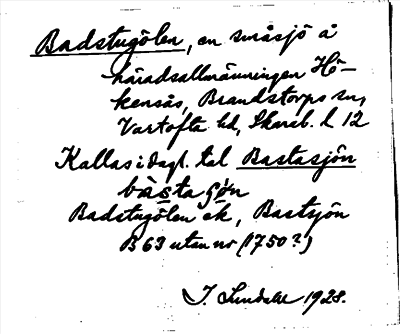 Badstugölen, en småsjö å
häradsallmänningen Hö-
kensås, Brandstorps sn,
Vartofta hd, Skarab. l 12
Kallas i dagl. tal Bastasjön
bàsta ʃön
Badstugölen ek, Bastsjön
B 63 utan nr (1750?)
J. Lindahl 1928.